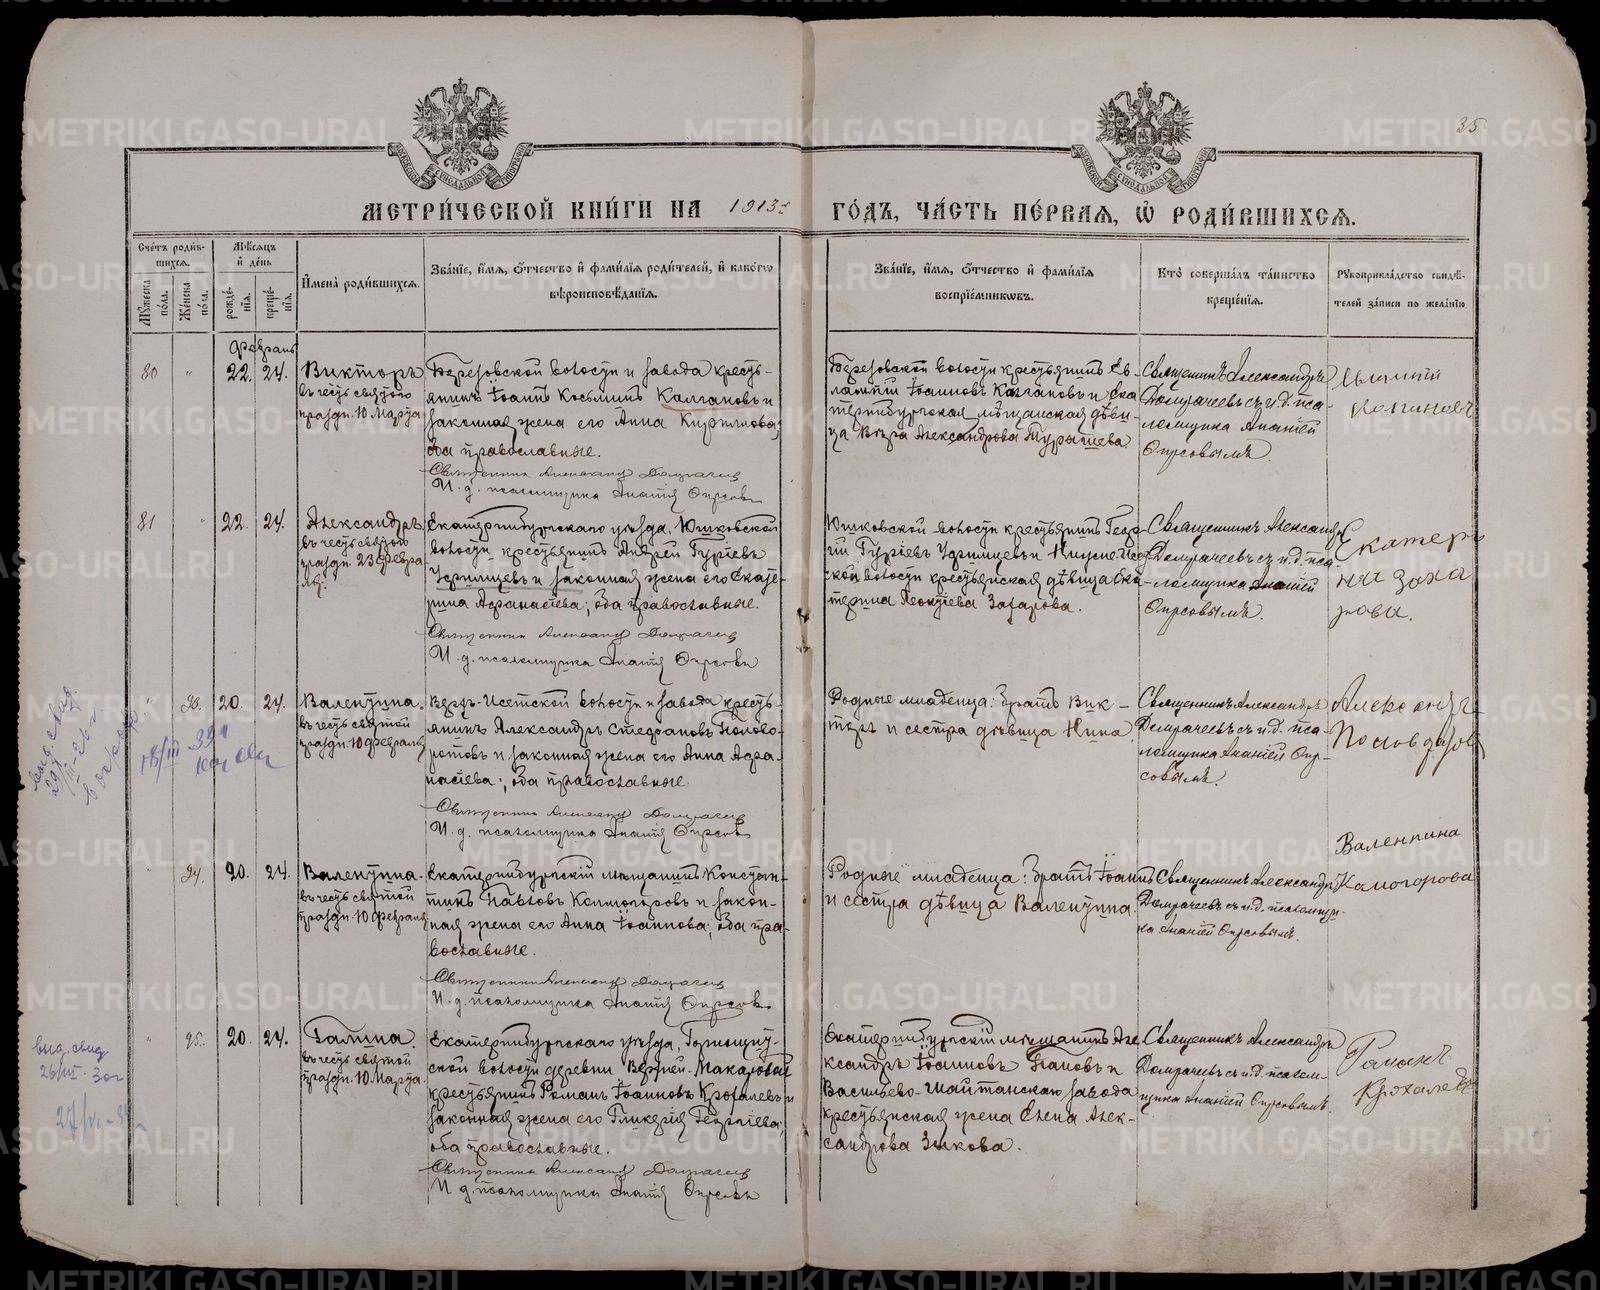 35
МОСКОВСКОЙ СУНОДАЛЬНОЙ ТИПОГРАФІИ
МЕТРИ́ЧЕСКОЙ КНИ́ГИ НА 1913 ГО́ДЪ, ЧА́СТЬ ПЕ́РВАЯ, Ѡ РОДИ́ВШИХСЯ.
Сче́тъ роди́в-
шихся.
Мꙋ́жеска по́ла.
Же́нска по́ла.
Мѣ́сяцъ
и҆ де́нь
рожде́-
нія.
креще́-
нія.
И҆мена̀ роди́вшихся.
Зва́ніе, и҆́мя, ѻ҆́тчество и҆ фами́лія роди́телей, и҆ како́гѡ
вѣроисповѣ́данія.
Зва́ніе, и҆́мя, ѻ҆́тчество и҆ фами́лія
воспріе́мникѡвъ.
Кто̀ соверша́лъ та́инство
креще́нія.
Рꙋкоприкла́дство свидѣ́-
телей за́писи по жела́нію.
Февраль
80 " 22. 24. Викторъ
въ честь святого
праздн. 10 Марта
Березовской волости и завода кресть-
янинъ Іоаннъ Косьминъ Калгановъ и
законная жена его Анна Кириллова,
оба православные.
Священникъ Александръ Домрачевъ
И. д. псаломщика Ананій Фирсовъ
Березовской волости крестьянинъ Ев-
лампій Іоанновъ Калгановъ и Ека-
теринбургская мѣщанская дѣви-
ца Вѣра Александрова
Священникъ Александръ
Домрачевъ съ и.д. пса-
ломщика Ананіей
Фирсовымъ.
81 " 22. 24. Александръ.
въ честь святого
праздн. 23 Февра-
ля.
Екатеринбургскаго уѣзда, Юшковской
волости, крестьянинъ Андрей Гурiевъ
и законная жена его Екате-
рина Афанасіева; оба православные.
Священникъ Александръ Домрачевъ
И. д. псаломщика Ананій Фирсовъ
Юшковской волости крестьянинъ Геор-
гій Гурiевъ
ской волости крестьянская дѣвица Ека-
терина Захарова.
Священникъ Александръ
Домрачевъ съ и.д. пса-
ломщика Ананіей
Фирсовымъ.
Екатери
на Заха
рова.
" 93. 20. 24. Валентина.
въ честь святой
праздн. 10 Февраля
Верх-Исетской волости и завода кресть-
янинъ Александръ Стефановъ
и законная жена его Анна Афа-
насіева; оба православные
Священникъ Александръ Домрачевъ
И. д. псаломщика Ананій Фирсовъ
Родные младенца: братъ Вик-
торъ и сестра дѣвица Нина
Священникъ Александръ
Домрачевъ съ и.д. пса-
ломщика Ананіей Фир-
совымъ.
" 94. 20. 24. Валентина.
въ честь святой
праздн. 10 Февраля
Екатеринбургскій мѣщанинъ Констан-
тинъ Павловъ Колмогоровъ и закон-
ная жена его Анна Іоаннова; оба пра-
вославные.
Священникъ Александръ Домрачевъ
И. д. псаломщика Ананій Фирсовъ
Родные младенца: братъ Іоаннъ
и сестра дѣвица Валентина.
Священникъ Александръ
Домрачевъ съ и.д. псаломщи-
ка Ананіей Фирсовымъ.
Валентина
Камогорова
" 95. 20. 24. Галина.
въ честь святой
праздн. 10 Марта.
Екатеринбургскаго уѣзда, Горнощит-
ской волости деревни Верхней-Макаровой
крестьянинъ Романъ Іоанновъ Крохалевъ и
законная жена его Гликерія Георгіева;
оба православные.
Священникъ Александръ Домрачевъ
И. д. псаломщика Ананій Фирсовъ
Екатеринбургскій мѣщанинъ Але-
ксандръ Іоанновъ Пановъ и
Васильево-Шайтанскаго завода
крестьянская жена Елена Алек-
сандрова Зыкова.
Священникъ Александръ
Домрачевъ съ и.д. псалом-
щика Ананіей Фирсовымъ.
Романъ
Крохалевъ
METRIKI.GASO-URAL.RU